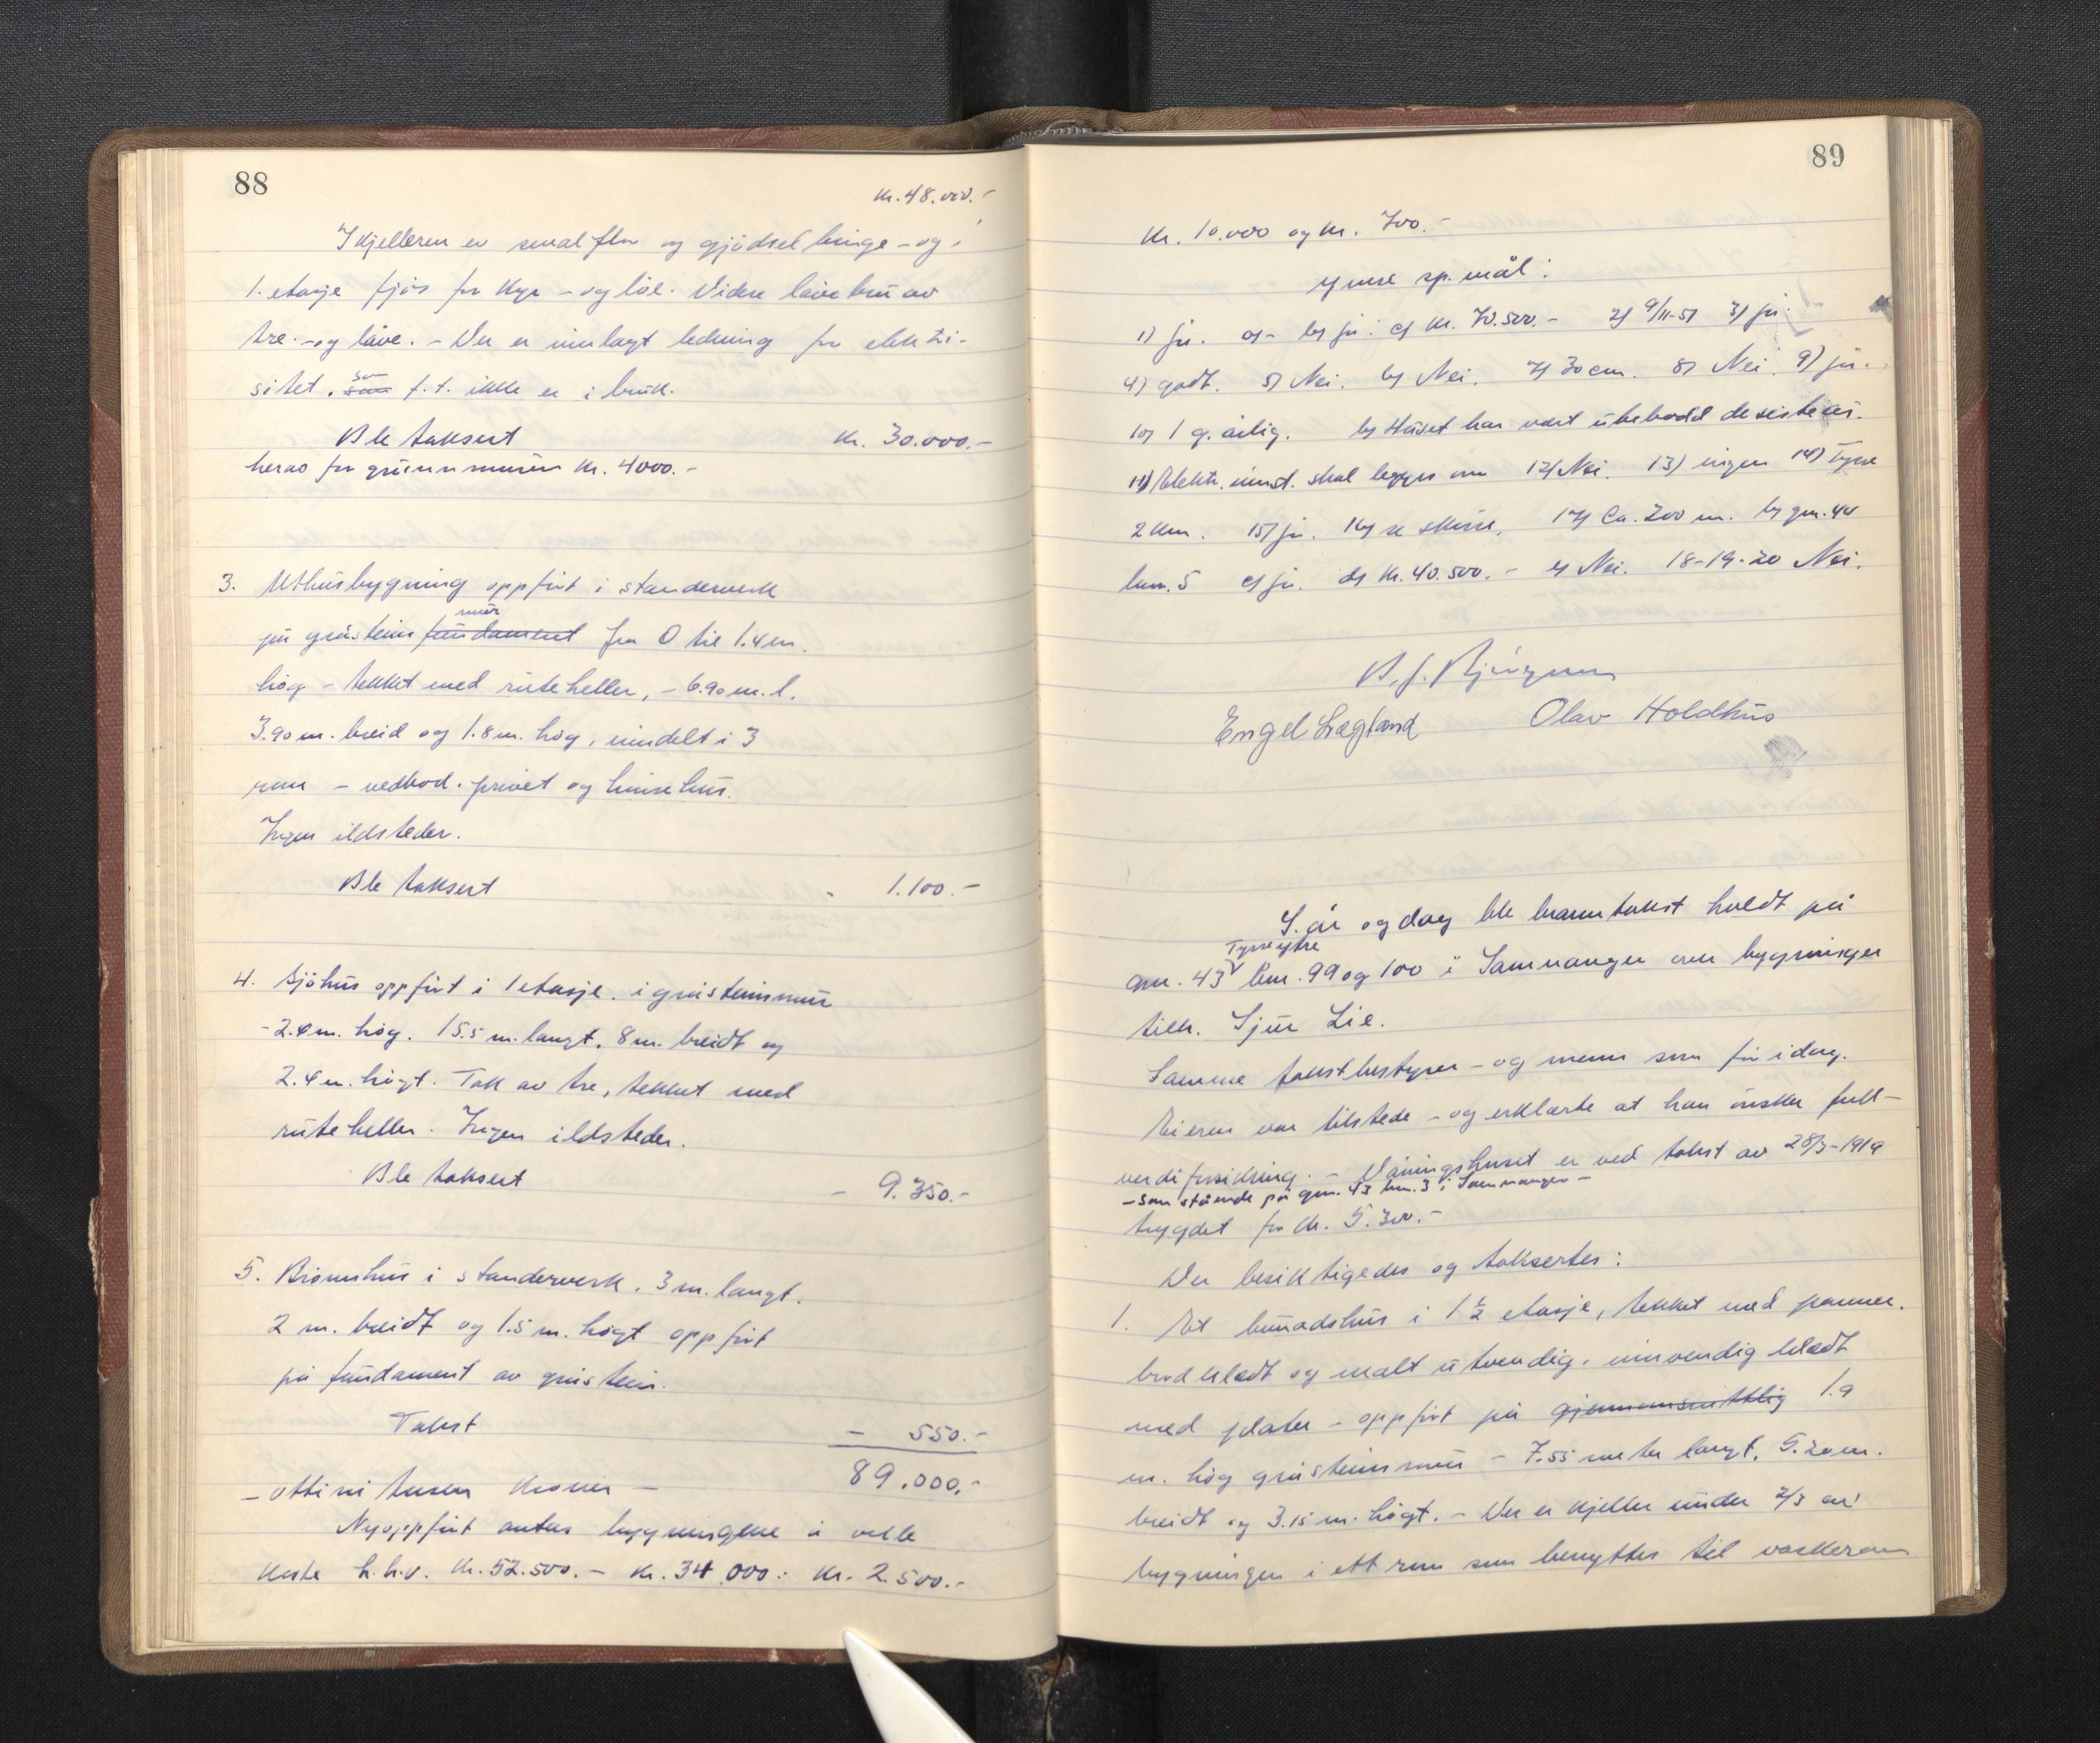 88
Kr. 48.000.-
I kjelleren er smalflor og gjødselbinge - og i
1. etasje fjøs for kyr - og löe. Videre låvebru av
tre. - og låve. - Der er innlagt ledning for elektri-
sitet. som som f.t. ikke er i bruk.
Ble taksert Kr. 30.000.-
herav for grunnmuren Kr. 4000.-
3. Uthusbygning oppfört i standerverk
mur
på gråsteins fundament fra 0 til 1.4 m.
hög - tekket med ruteheller, - 6.90 m. l.
3.90 m. breid og 1.8 m. hög, inndelt i 3
rum - vedbod. privet og hönsehus.
Ingen ildsteder.
Ble taksert - 1.100.-
4. Sjöhus oppfört i 1 etasje. i gråsteinsmur
- 2.4 m. hög. 15.5 m. langt. 8 m. breidt og
2.4 m. högt. Tak av tre, tekket med
ruteheller. Ingen ildsteder.
Ble taksert - 9.350.-
5. Brönnhus i standerverk. 3 m. langt.
2 m. breidt og 1.5 m. högt oppfört
på fundament av gråstein.
Takst - 550.-
- ottini tusen kroner - 89.000.-
Nyoppfört antas bygningene å ville
koste h.h.v. Kr. 52.500.- Kr. 34.000: Kr. 2.500.-
89
Kr. 10.000 og Kr. 700.-
Ymse sp.mål:
1) ja. a)- b) ja: c) Kr. 70.500.- 2) 9/11-51 3) ja.
4) godt. 5) Nei. 6) Nei. 7) 30 cm. 8) Nei. 9) ja.
10) 1 g. årlig. b) Huset har vært ubebodd de siste år.
11) Elektr. innst. skal legges om 12) Nei. 13) ingen 14) Tysse
2 km. 15) ja. 16) se skisse. 17) Ca. 200 m. b) gnr. 44
bnr. 5 c) ja. d) Kr. 40.500.- e) Nei. 18-19-20 Nei.
Engel Lægland Olav Holdhus
S. år og dag ble branntakst holdt på
Tysse ytre
gnr. 43 bnr. 99 og 100 i Samnanger over bygninger
tilh. Sjur Lie.
Samme takstbestyrer - og menn som för idag.
Eieren var tilstede - og erklærte at han önsker full-
verdiforsikring. - Våningshuset er ved takst av 28/3-1919
- som stående på gnr. 43 bnr. 3 i Samnanger -
trygdet for Kr. 5.300.-
Der besiktigedes og taksertes:
1. Et bunadshus i 1 1/2 etasje, tekket med panner.
bordkledt og malt utvendig. innvendig kledt
med plater - oppfört på gjennomsnittlig 1.9
m. hög gråsteinsmur - 7.55 meter langt, 5.20 m.
breidt og 3.15 m. högt. - Der er kjeller under 2/3 av
bygningen i ett rum som benyttes til vaskerom